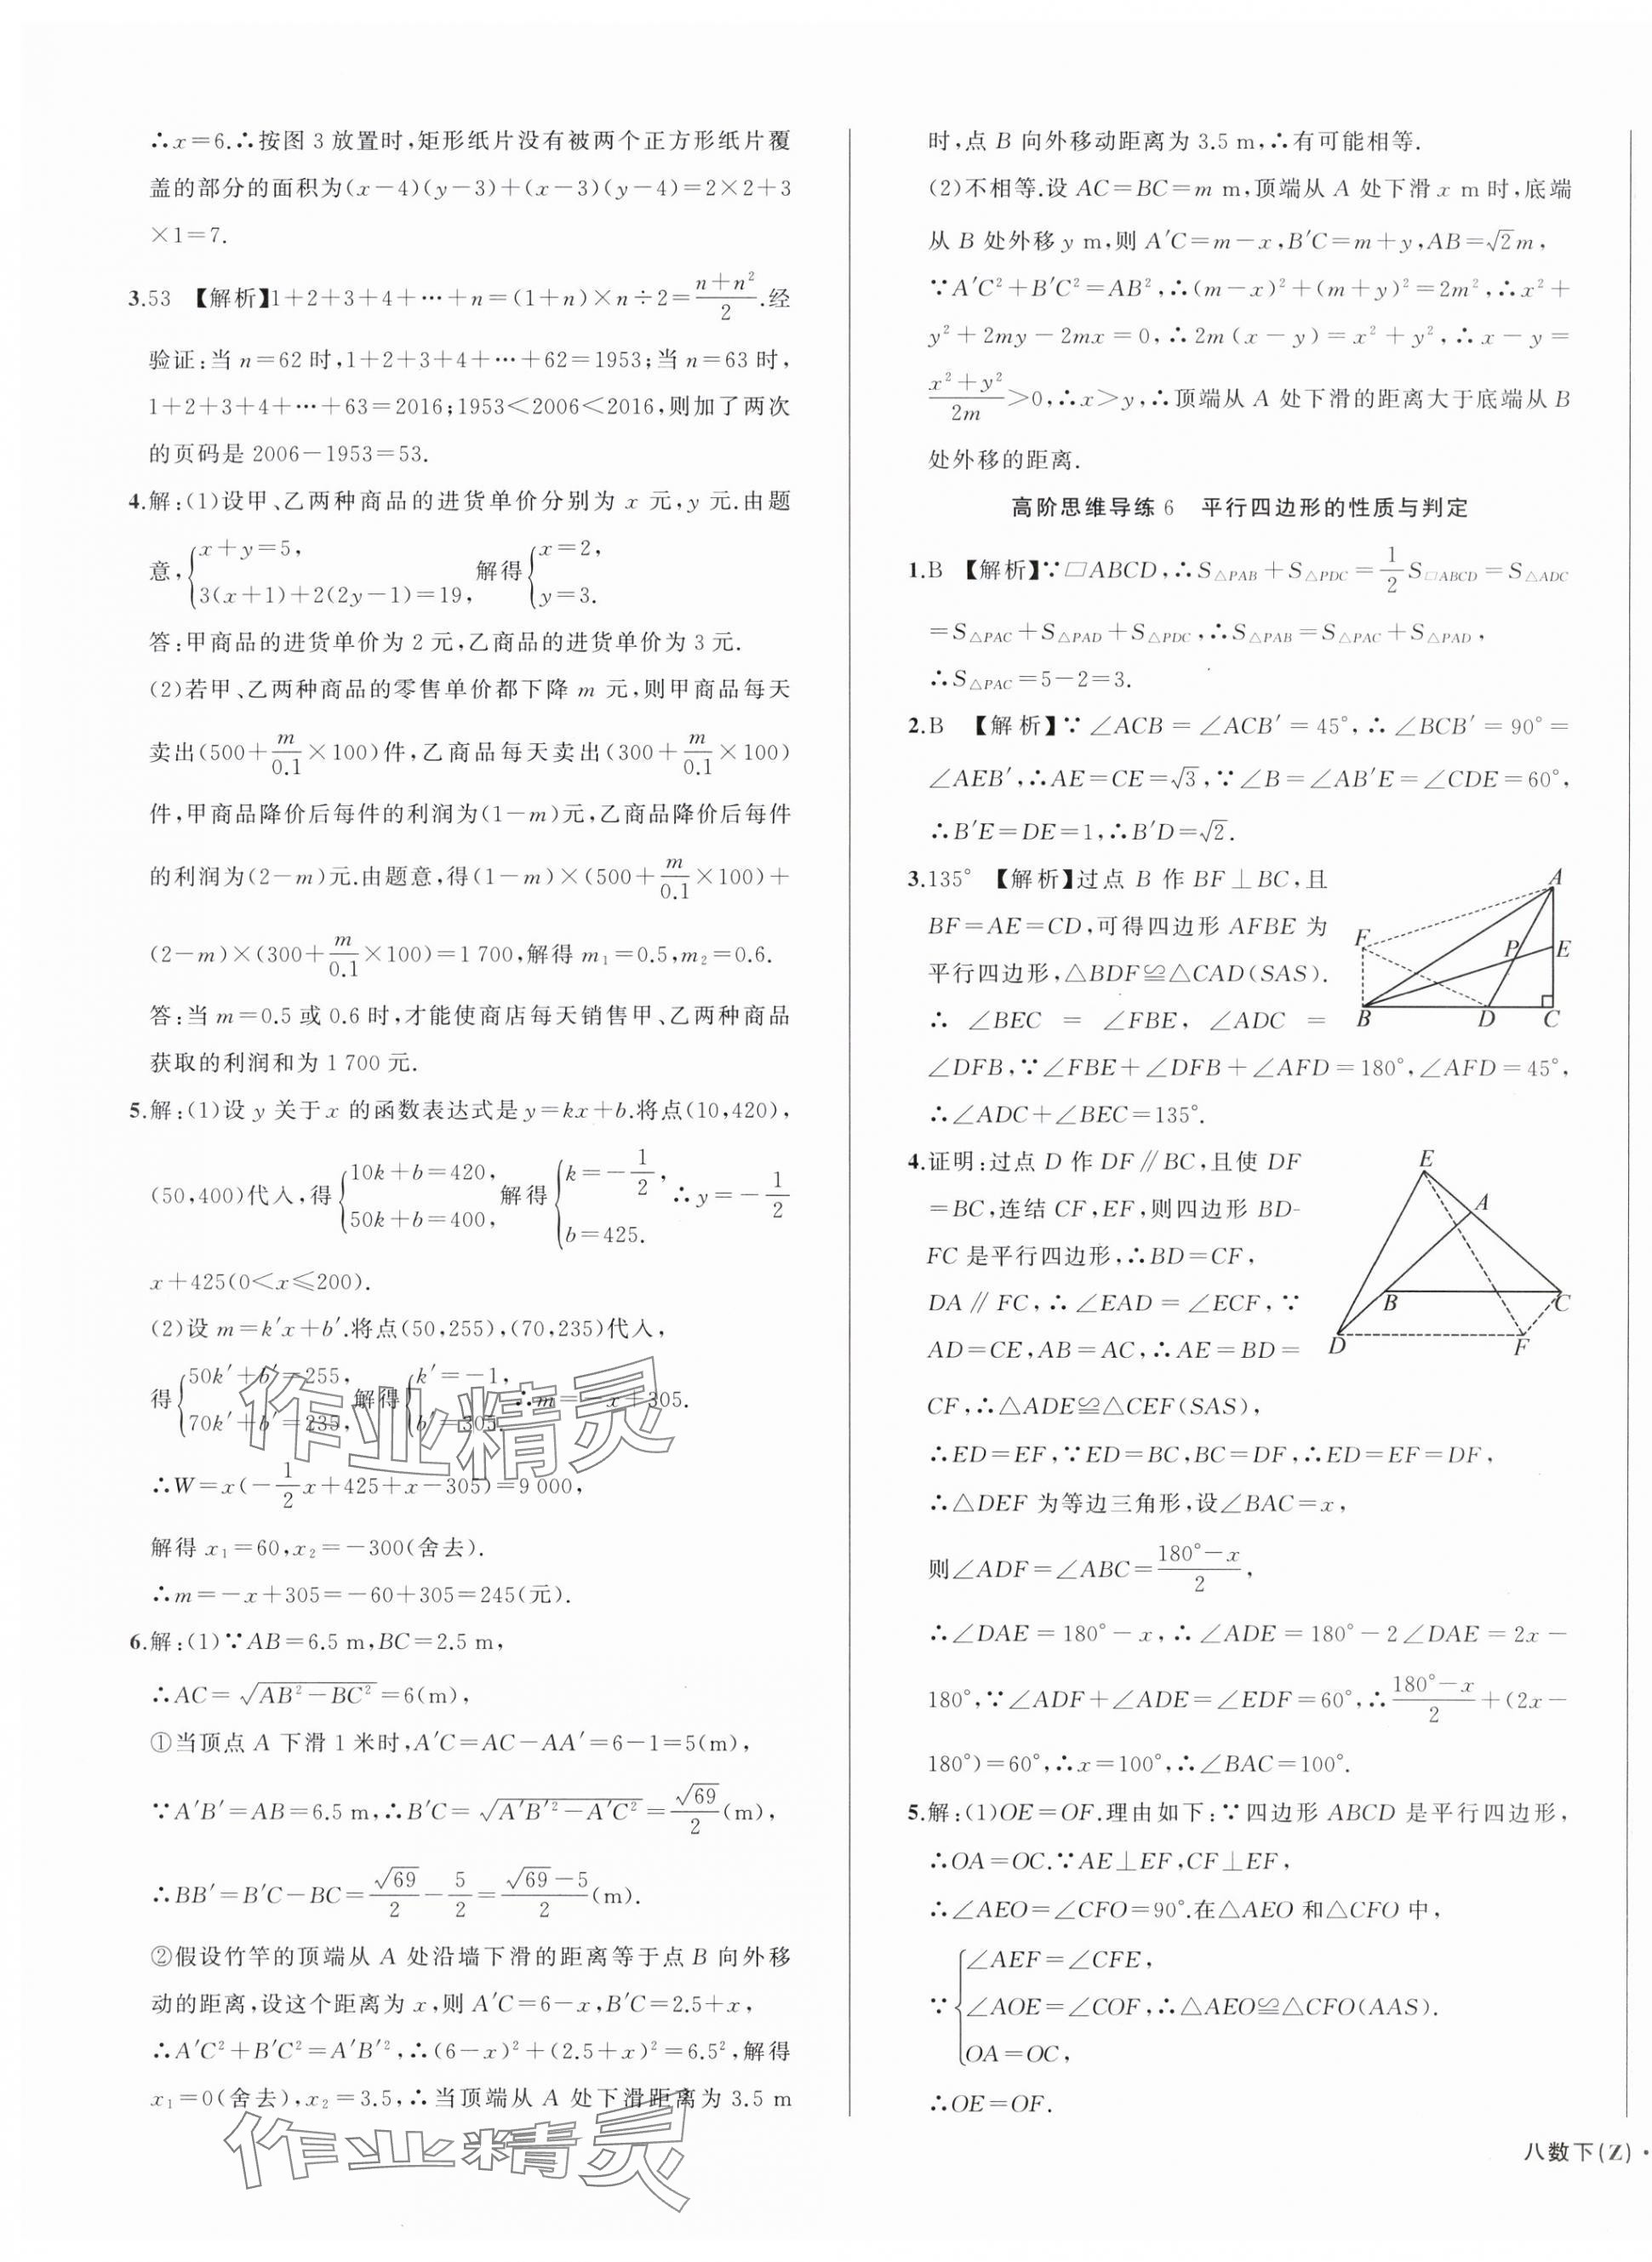 ∴x=6.∴按图 3 放置时,矩形纸片没有被两个正方形纸片覆
盖的部分的面积为(x-4)(y-3)+(x-3)(y-4)=2×2+3
×1=7.
3.53 【解析】1+2+3+4+…+n=(1+n)×n÷2=\frac{n+n²}{2}.经
验证:当 n=62 时,1+2+3+4+…+62=1953;当 n=63 时,
1+2+3+4+…+63=2016;1953<2006<2016,则加了两次
的页码是 2006-1953=53.
4.解:(1)设甲、乙两种商品的进货单价分别为 x 元,y 元.由题
意,{x+y=5, 3(x+1)+2(2y-1)=19, 解得{x=2, y=3.
答:甲商品的进货单价为 2 元,乙商品的进货单价为 3 元.
(2)若甲、乙两种商品的零售单价都下降 m 元,则甲商品每天
卖出(500+\frac{m}{0.1}×100)件,乙商品每天卖出(300+\frac{m}{0.1}×100)
件,甲商品降价后每件的利润为(1-m)元,乙商品降价后每件
的利润为(2-m)元.由题意,得(1-m)×(500+\frac{m}{0.1}×100)+
(2-m)×(300+\frac{m}{0.1}×100)=1 700,解得 m₁=0.5,m₂=0.6.
答:当 m=0.5 或 0.6 时,才能使商店每天销售甲、乙两种商品
获取的利润和为 1 700 元.
5.解:(1)设 y 关于 x 的函数表达式是 y=kx+b.将点(10,420),
(50,400)代入,得{10k+b=420, 50k+b=400, 解得{k=-\frac{1}{2}, b=425. ∴y=-\frac{1}{2}
x+425(0<x≤200).
(2)设 m=k′x+b′.将点(50,255),(70,235)代入,
得{50k′+b′=255, 70k′+b′=235, 解得{k′=-1, b′=305. ∴m=-x+305.
∴W=x(-\frac{1}{2}x+425+x-305)=9 000,
解得 x₁=60,x₂=-300(舍去).
∴m=-x+305=-60+305=245(元).
6.解:(1)∵AB=6.5 m,BC=2.5 m,
∴AC=√(AB²-BC²)=6(m),
①当顶点 A 下滑 1 米时,A′C=AC-AA′=6-1=5(m),
∵A′B′=AB=6.5 m,∴B′C=√(A′B′²-A′C²)=\frac{√69}{2}(m),
∴BB′=B′C-BC=\frac{√69}{2}-\frac{5}{2}=\frac{√69-5}{2}(m).
②假设竹竿的顶端从 A 处沿墙下滑的距离等于点 B 向外移
动的距离,设这个距离为 x,则 A′C=6-x,B′C=2.5+x,
∴A′C²+B′C²=A′B′²,∴(6-x)²+(2.5+x)²=6.5²,解得
x₁=0(舍去),x₂=3.5,∴当顶端从 A 处下滑距离为 3.5 m
时,点 B 向外移动距离为 3.5 m,∴有可能相等.
(2)不相等.设 AC=BC=m m,顶端从 A 处下滑 x m 时,底端
从 B 处外移 y m,则 A′C=m-x,B′C=m+y,AB=√2m,
∵A′C²+B′C²=AB²,∴(m-x)²+(m+y)²=2m²,∴x²+
y²+2my-2mx=0,∴2m(x-y)=x²+y²,∴x-y=
\frac{x²+y²}{2m}>0,∴x>y,∴顶端从 A 处下滑的距离大于底端从 B
处外移的距离.
高阶思维导练 6 平行四边形的性质与判定
1.B 【解析】∵▱ABCD,∴S△PAB+S△PDC=\frac{1}{2}S▱ABCD=S△ADC
=S△PAC+S△PAD+S△PDC,∴S△PAB=S△PAC+S△PAD,
∴S△PAC=5-2=3.
2.B 【解析】∵∠ACB=∠ACB′=45°,∴∠BCB′=90°=
∠AEB′,∴AE=CE=√3,∵∠B=∠AB′E=∠CDE=60°,
∴B′E=DE=1,∴B′D=√2.
3.135° 【解析】过点 B 作 BF⊥BC,且
BF=AE=CD,可得四边形 AFBE 为
平行四边形,△BDF≌△CAD(SAS).
∴∠BEC=∠FBE,∠ADC=
∠DFB,∵∠FBE+∠DFB+∠AFD=180°,∠AFD=45°,
∴∠ADC+∠BEC=135°.
A
F
P
E
B
D
C
4.证明:过点 D 作 DF∥BC,且使 DF
=BC,连结 CF,EF,则四边形 BD-
FC 是平行四边形,∴BD=CF,
DA∥FC,∴∠EAD=∠ECF,∵
AD=CE,AB=AC,∴AE=BD=
CF,∴△ADE≌△CEF(SAS),
∴ED=EF,∵ED=BC,BC=DF,∴ED=EF=DF,
∴△DEF 为等边三角形,设∠BAC=x,
则∠ADF=∠ABC=\frac{180°-x}{2},
∴∠DAE=180°-x,∴∠ADE=180°-2∠DAE=2x-
180°,∵∠ADF+∠ADE=∠EDF=60°,∴\frac{180°-x}{2}+(2x-
180°)=60°,∴x=100°,∴∠BAC=100°.
E
A
B
C
D
F
5.解:(1)OE=OF.理由如下:∵四边形 ABCD 是平行四边形,
∴OA=OC.∵AE⊥EF,CF⊥EF,
∴∠AEO=∠CFO=90°.在△AEO 和△CFO 中,
∵{∠AEF=∠CFE, ∠AOE=∠COF, OA=OC, ∴△AEO≌△CFO(AAS).
∴OE=OF.
八数下(Z)·
作业精灵
作业精灵